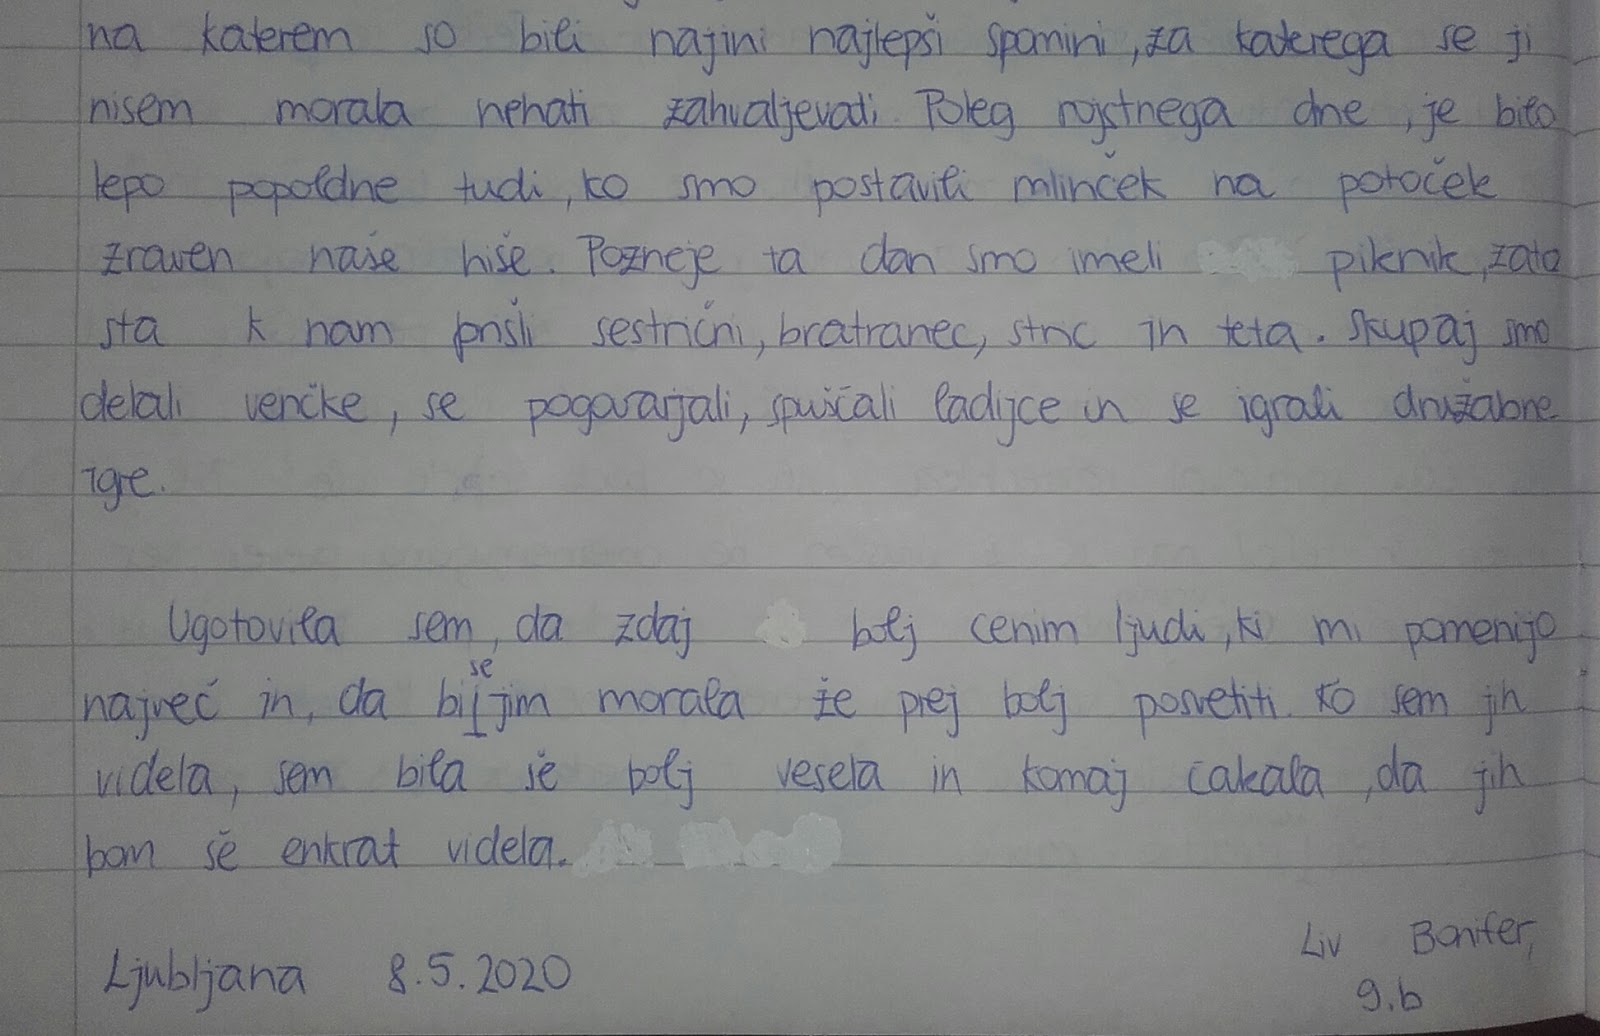 na katerem so bili najini najlepši spomini, za katerega se ji
nisem morala nehati zahvaljevati. Poleg rojstnega dne, je bilo
lepo popoldne tudi, ko smo postavili mlinček na potoček
zraven naše hiše. Pozneje ta dan smo imeli piknik, zato
sta k nam prišli sestrični, bratranec, stric in teta. Skupaj smo
delali venčke, se pogovarjali, spuščali ladijce in se igrali družabne
igre.
Ugotovila sem, da zdaj bolj cenim ljudi, ki mi pomenijo
največ in, da bi se jim morala že prej bolj posvetiti. Ko sem jih
videla, sem bila še bolj vesela in komaj čakala, da jih
bom še enkrat videla.
Ljubljana 8.5.2020
Liv Bonifer,
9.b